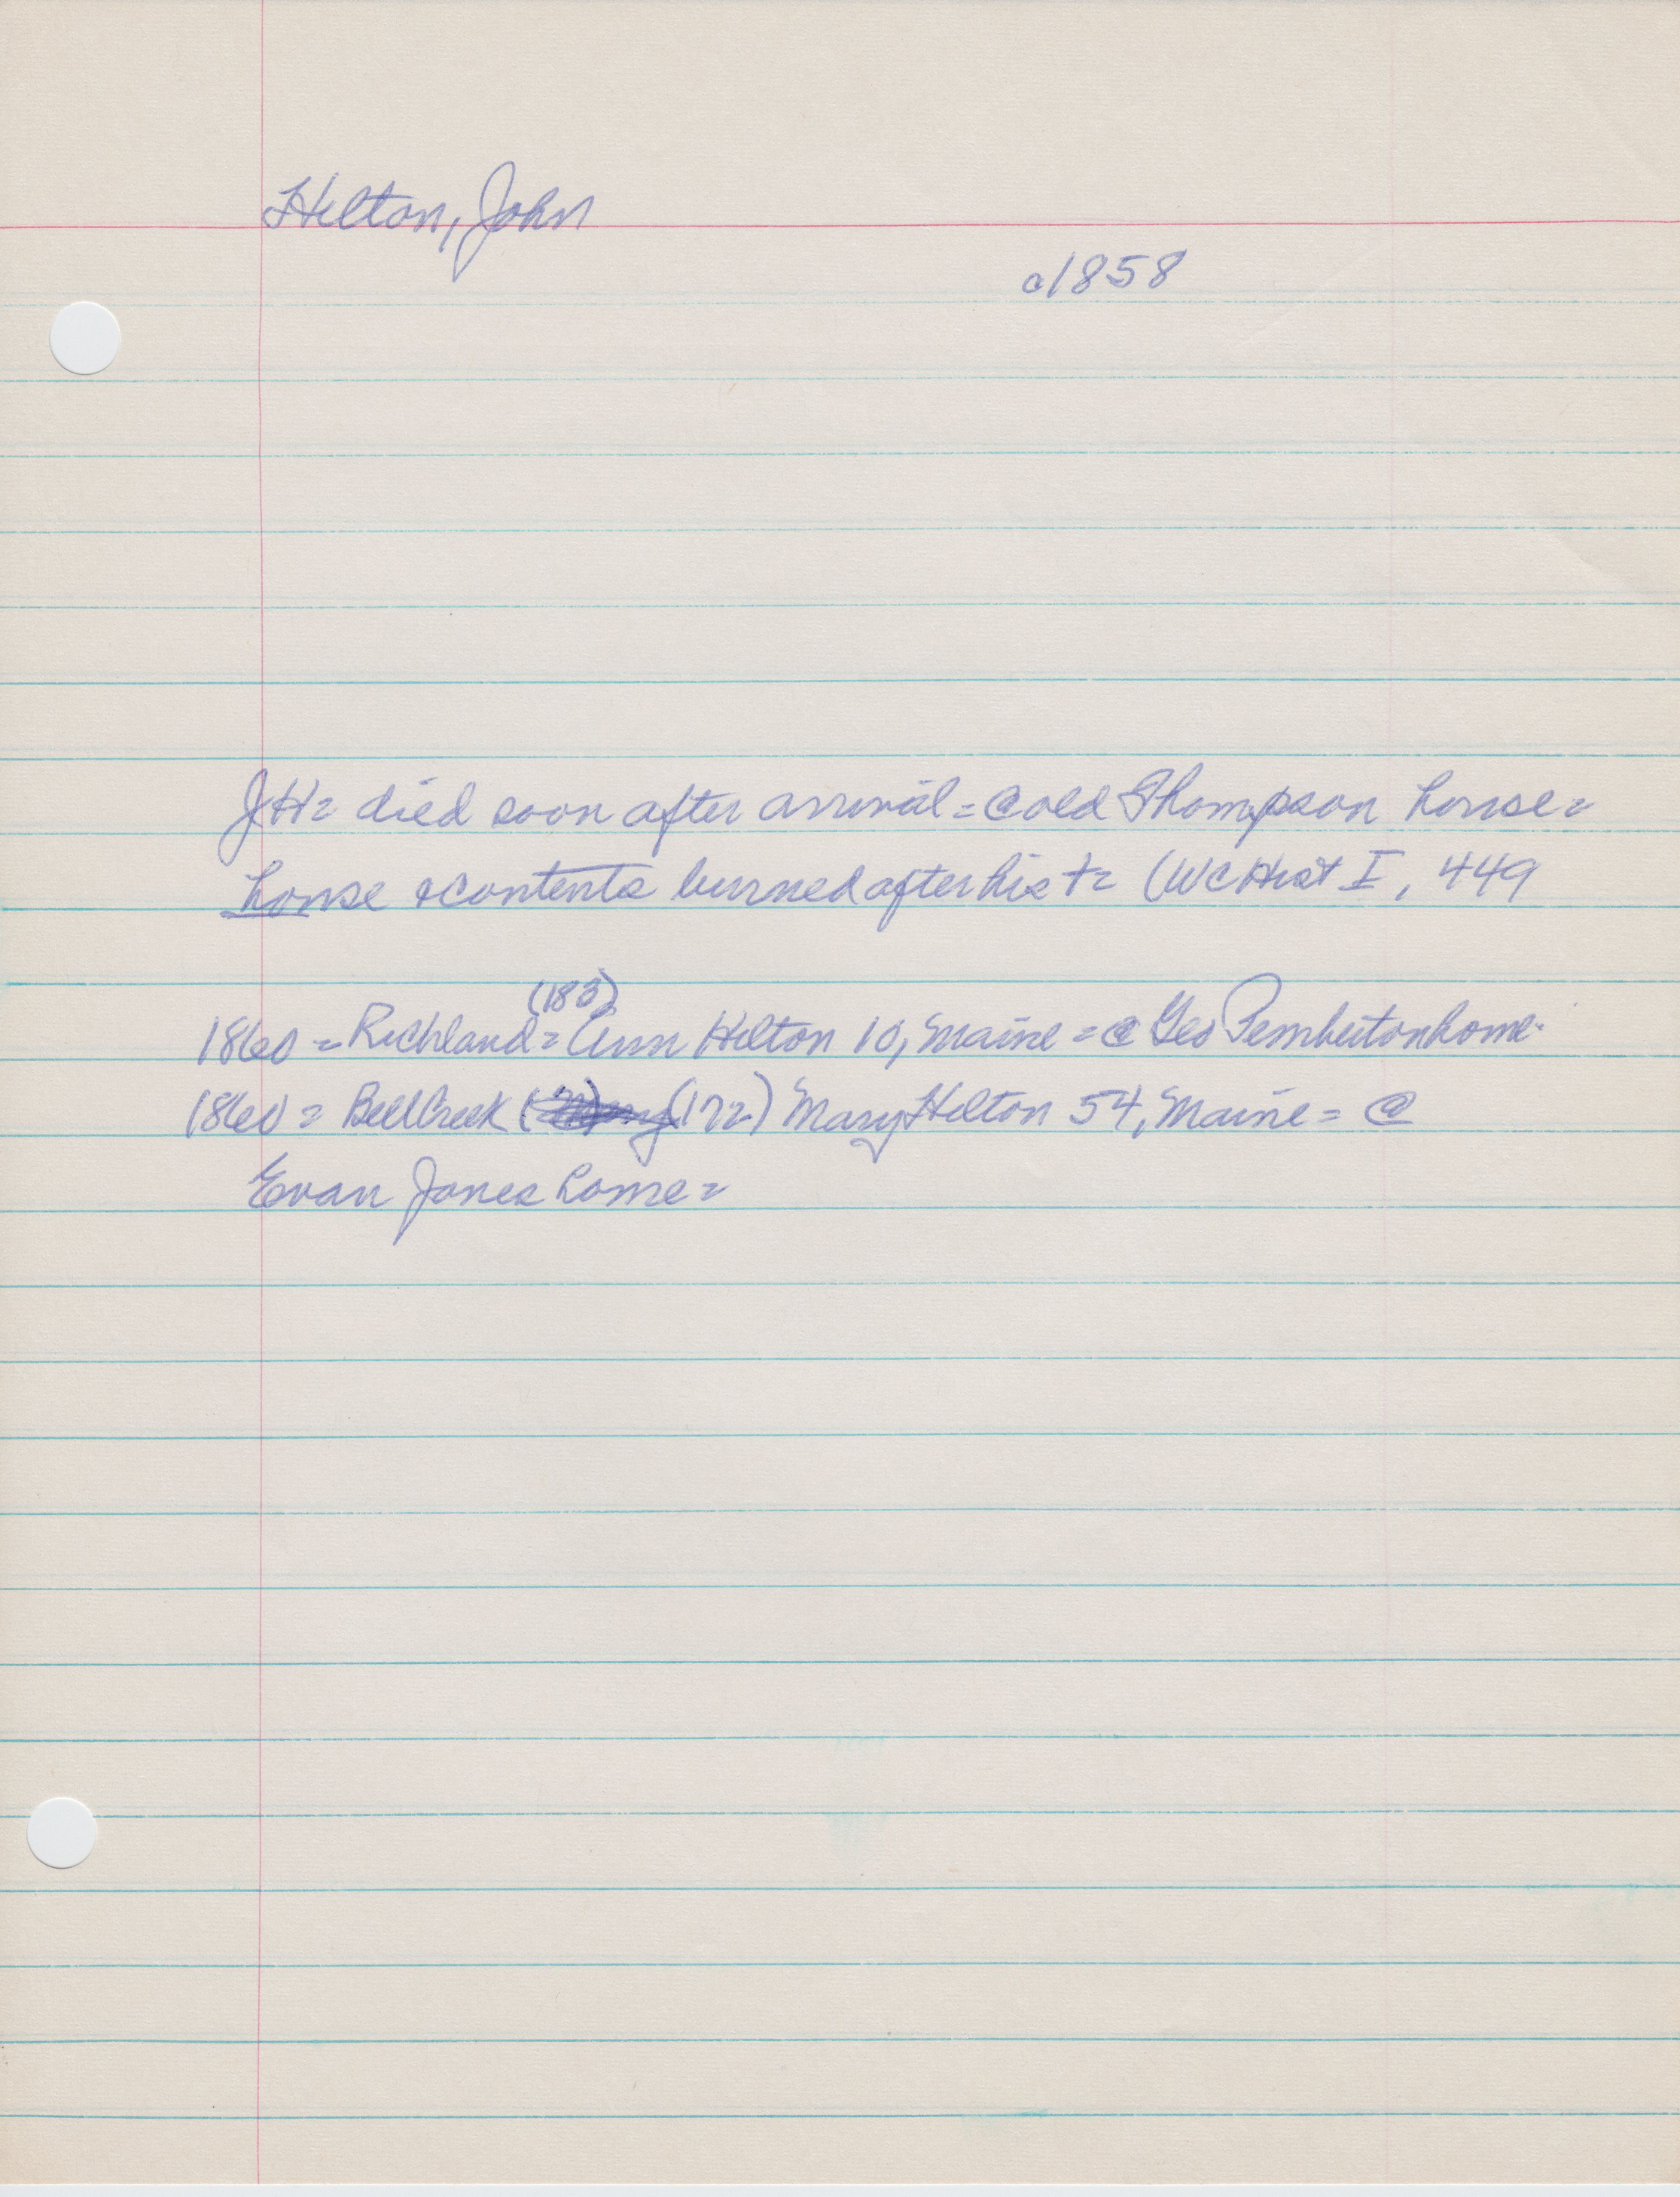 Hilton, John
c1858
JH= died soon after arrival = @ old Thompson house =
house & contents burned after his += (WC Hist I, 449
(183)
1860 = Richland = Ann Hilton 10, Maine = @ Geo Pemberton home.
1860 = Bell Creek (172) Mary Hilton 54, Maine = @
Evan Jones home =